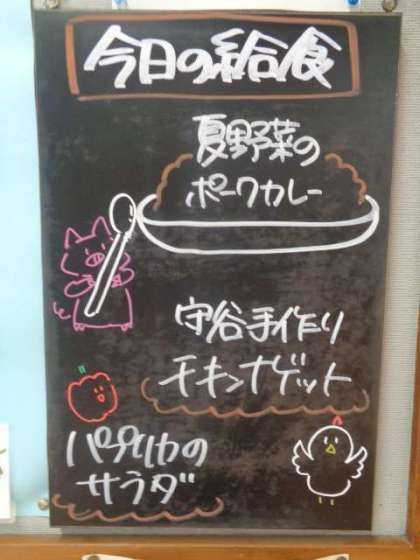 今日の給食
夏野菜の
ポークカレー
守谷手作り
チキンナゲット
パプリカの
サラダ